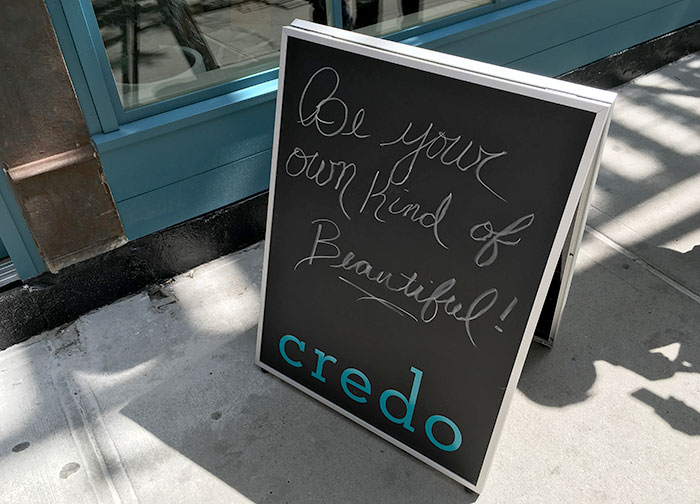 Be your
own kind of
Beautiful!
credo